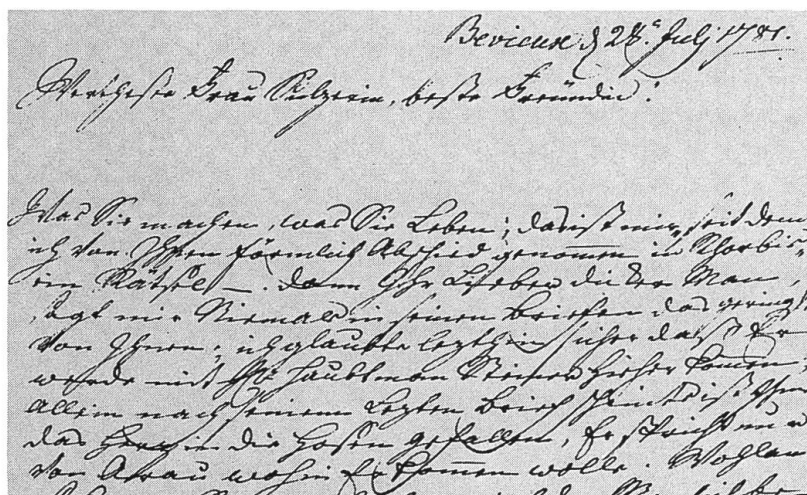 Bevieux d 28. July 1781.
Wertheste Frau Sulzerin, beste Freündin!
Was Sie machen, was Sie Leben; das ist mir, seit dem
ich von Ihnen förmlich Abschied genomen in
ein Rätsel —. dann Ihr Lieber dicker Man,
sagt mir Niemal in seinen Briefen das geringst
von Ihnen; ich glaubte lezthin sicher daß Er
werde mit Haubtman Steiner hieher komen,
allein nach seinem Lezten Brief scheint es ist Ihm
das Herz in die Hosen gefallen, Er spricht nur
von Arau wohin Er kommen wolle. Wohlan